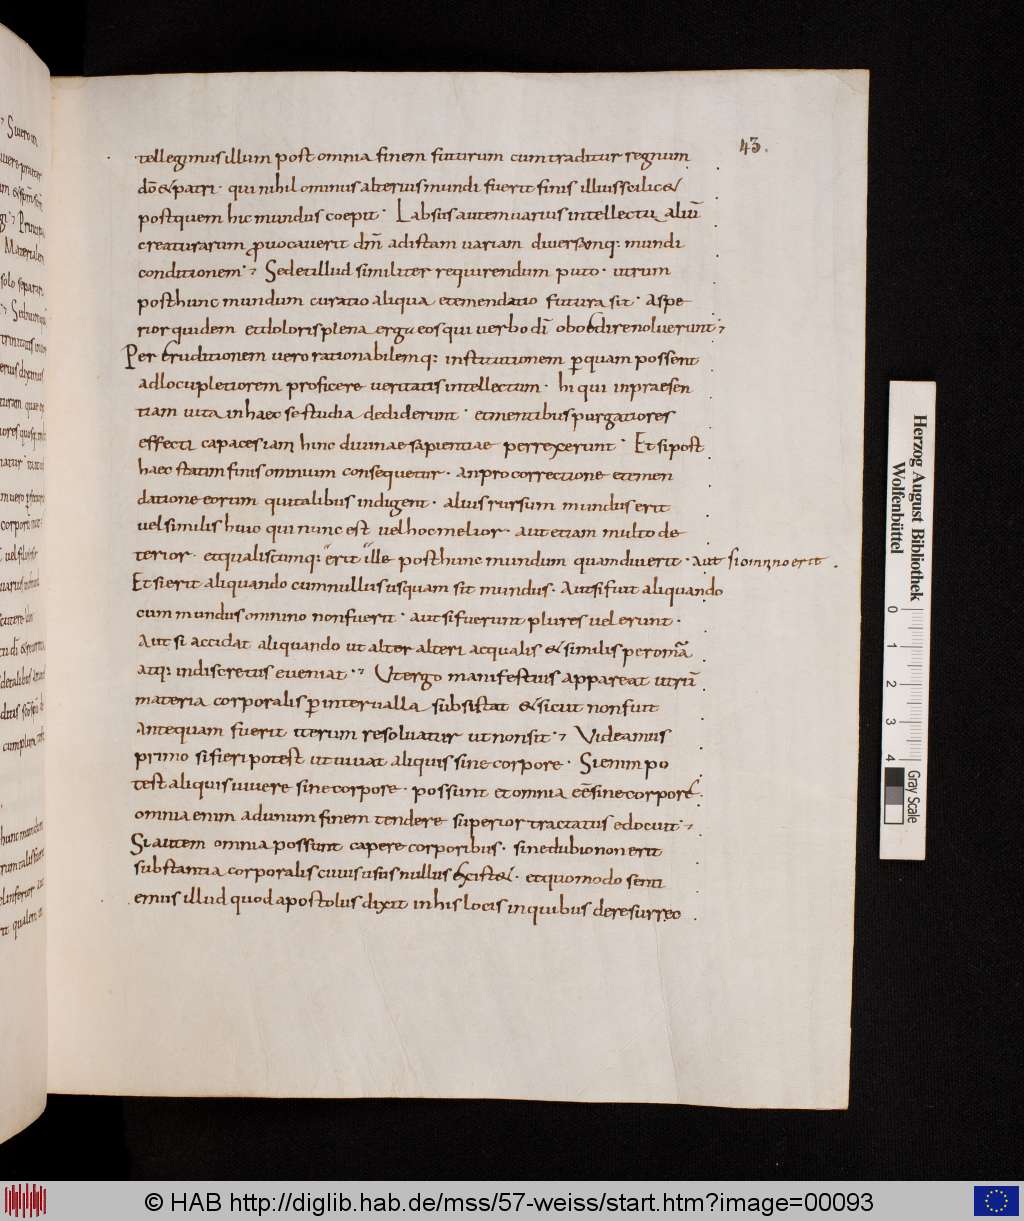 43.
tellegimus illum post omnia finem futurum cum traditur regnum
dō & patri · qui nihilominus alterius mundi fuerit finis illius scilic&
post quem hic mundus coepit · Labsus autem varius intellectu aliū
creaturarum provocaverit dm̄ ad istam variam diversamq; mundi
conditionem ·, Sed et illud similiter requirendum puto · utrum
post hunc mundum curatio aliqua et emendatio futura sit · aspe
rior quidem et doloris plena erga eos qui verbo dī oboedire noluerunt ·,
Per eruditionem vero rationabilemq; institutionem p quam possent
ad locupletiorem proficere veritatis intellectum · hi qui in praesen
tiam vita in haec se studia dediderunt · et mentibus purgatiores
effecti capaces iam hinc divinae sapientiae perrexerunt · Et si post
haec statim finis omnium consequetur · an pro correctione et emen
datione eorum qui talibus indigent · alius rursum mundus erit
vel similis huic qui nunc est vel hoc melior · aut etiam multo de
terior · et qualiscumq; erit ille post hunc mundum quamdiu erit · aut si omnino erit
Et si erit aliquando cum nullus usquam sit mundus · Aut si fuit aliquando
cum mundus omnino non fuerit · aut si fuerunt plures vel erunt ·
Aut si accidat aliquando ut alter alteri aequalis & similis per omīa
atq; indiscretus eveniat ·, Ut ergo manifestius appareat utrū
materia corporalis p intervalla subsistat & sicut non fuit
antequam fuerit iterum resolvatur ut non sit ·, Videamus
primo si fieri potest ut vivat aliquis sine corpore · Si enim po
test aliquis vivere sine corpore · possunt et omnia eē sine corpore ·
omnia enim ad unum finem tendere superior tractatus edocuit ·,
Si autem omnia possunt capere corporibus · sine dubio non erit
substantia corporalis cuius usus nullus exist& · et quomodo senti
emus illud quod apostolus dixit in his locis in quibus de resurreo
Herzog August Bibliothek
Wolfenbüttel
0 1 2 3 4
Gray Scale
© HAB http://diglib.hab.de/mss/57-weiss/start.htm?image=00093